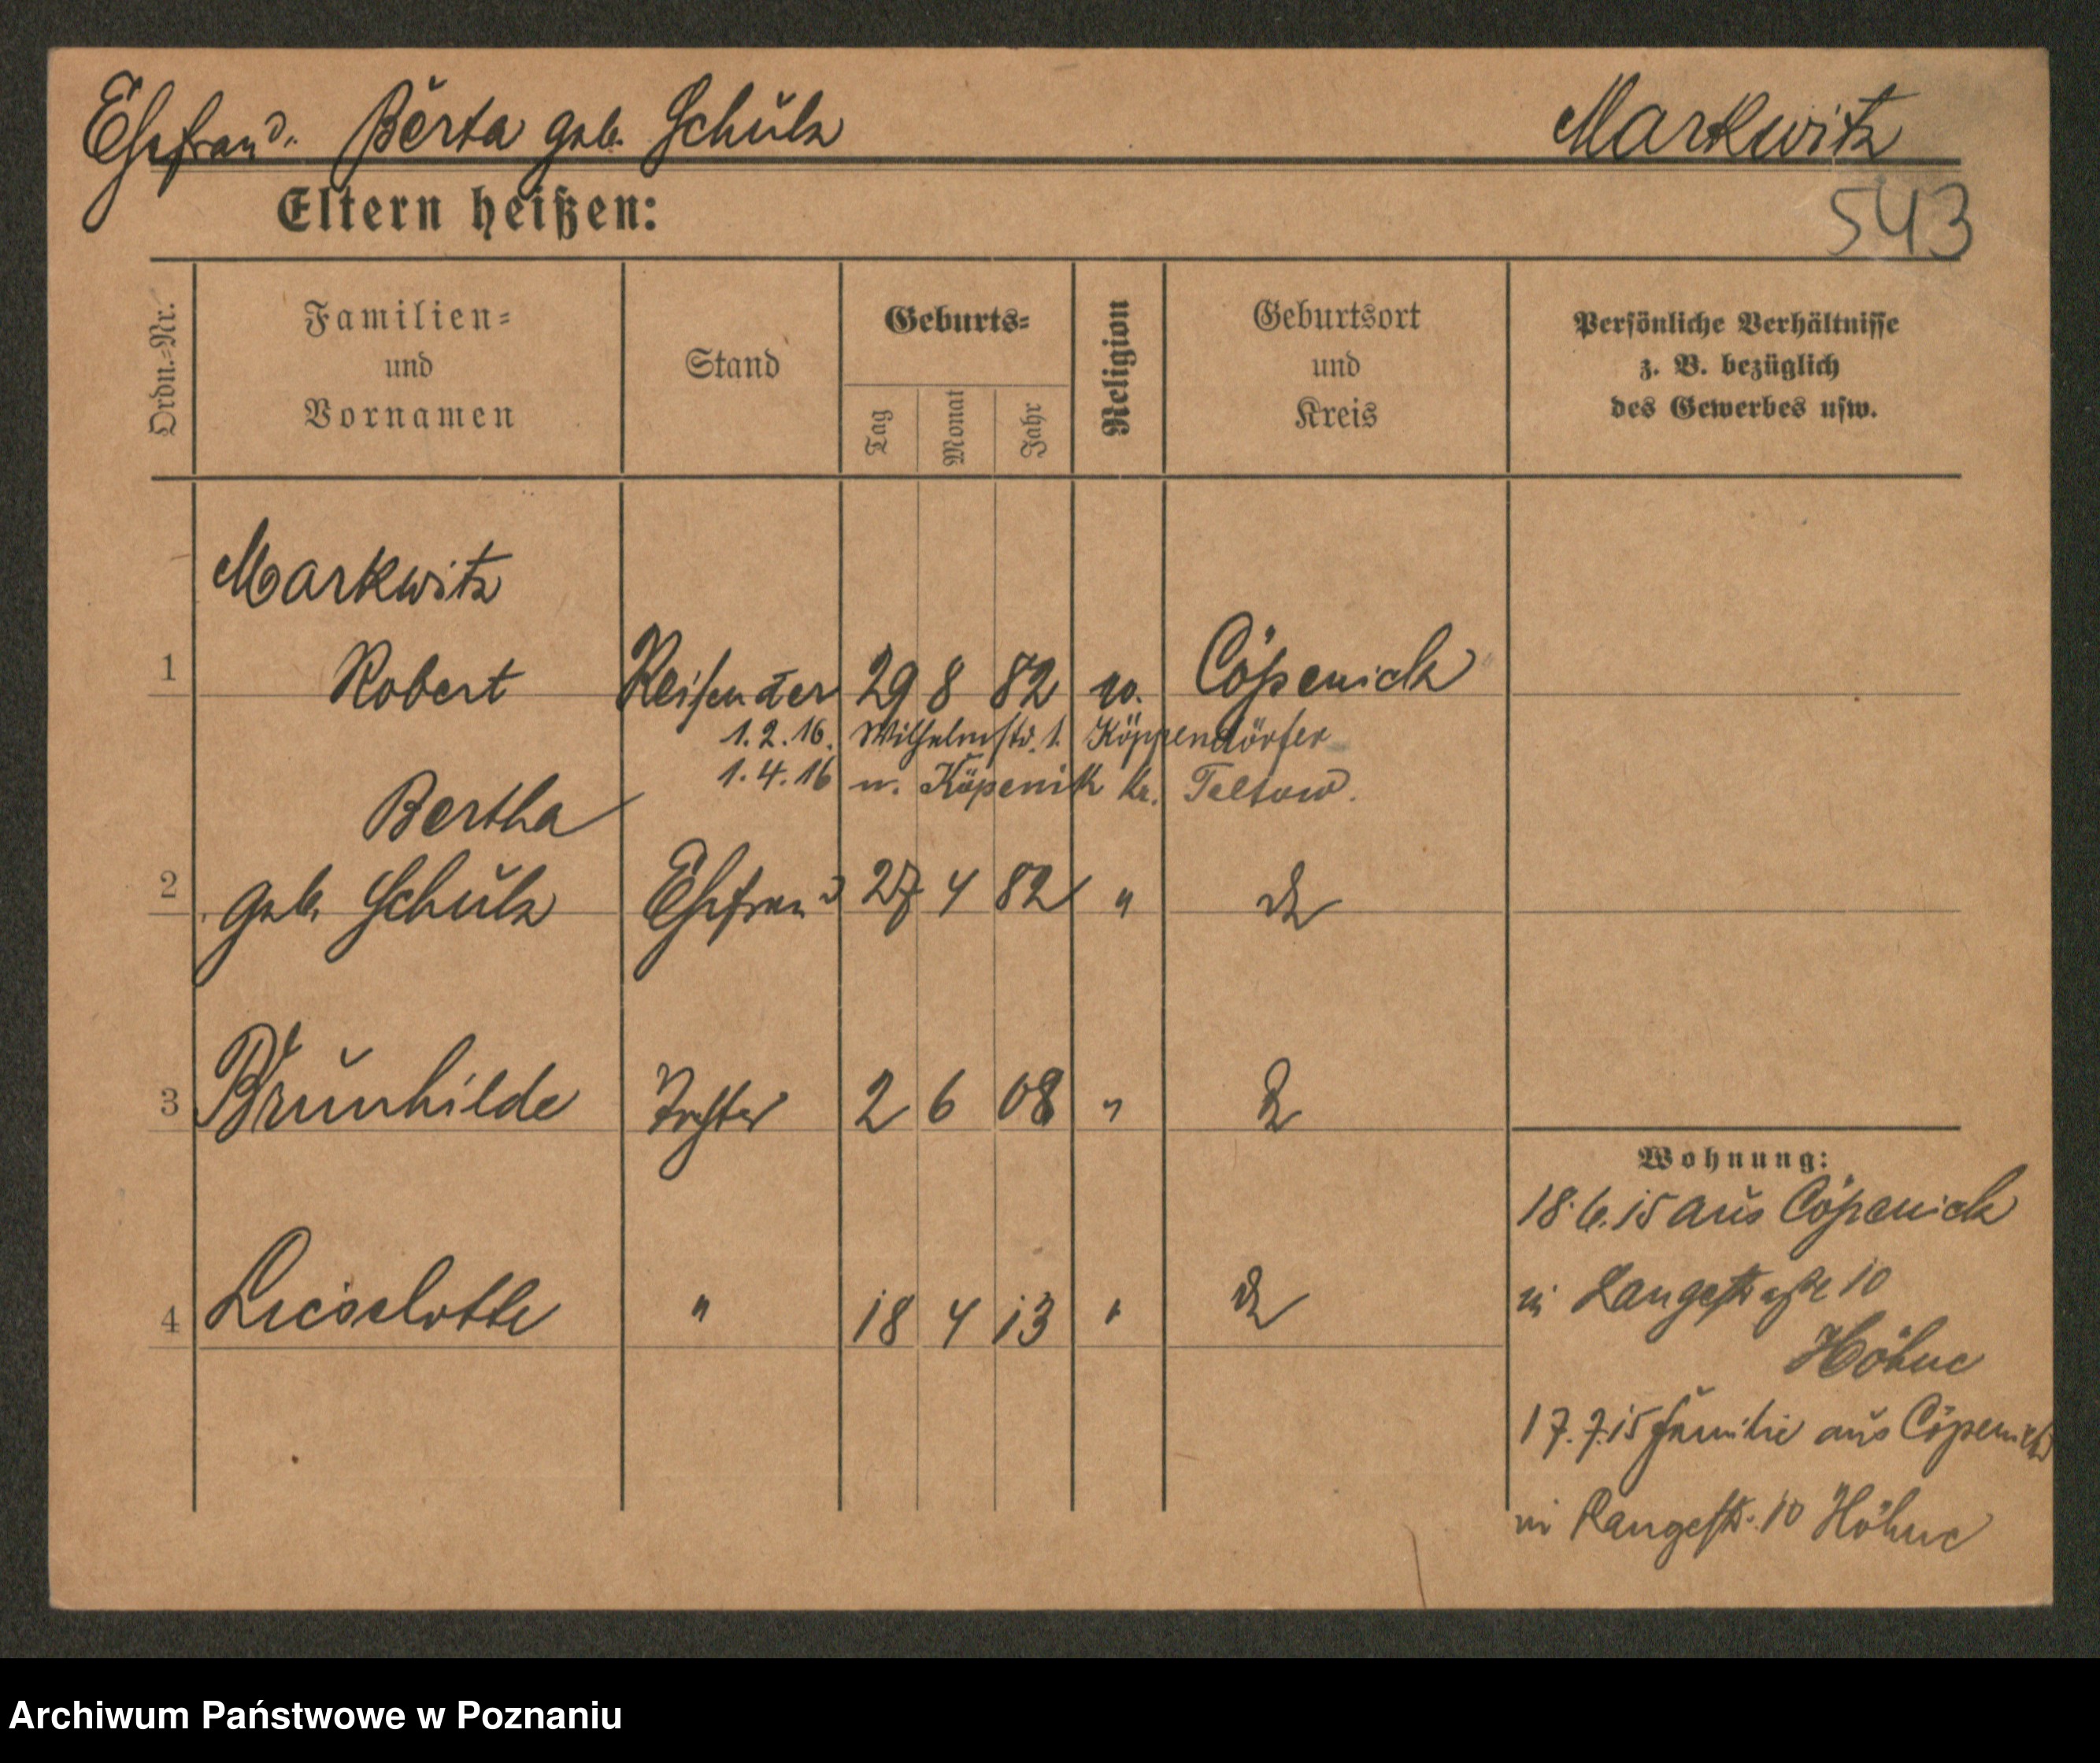 Ehefrau d. Berta geb. Schulz Markwitz
543
Eltern heißen:
Ordn.=Nr. Familien= und Vornamen Stand Geburts= Tag Monat Jahr Religion Geburtsort und Kreis Persönliche Verhältnisse z. B. bezüglich des Gewerbes usw.
Markwitz
1 Robert Reisender 29 8 82 Cöpenick
1.2.16. Wilhelmstr. 1. Köppendörfer
1.4.16 n. Köpenik Kr. Teltow.
Bertha
2 geb. Schulz Ehefrau d 27 4 82 "
3 Brunhilde Tochter 2 6 08 "
Wohnung:
18.6.15 aus Cöpenick
4 Lieselotte " 18 4 13 "
in Langestraße 10
Höhne
17.7.15 Familie aus Cöpenick
in Langestr. 10 Höhne
Archiwum Państwowe w Poznaniu